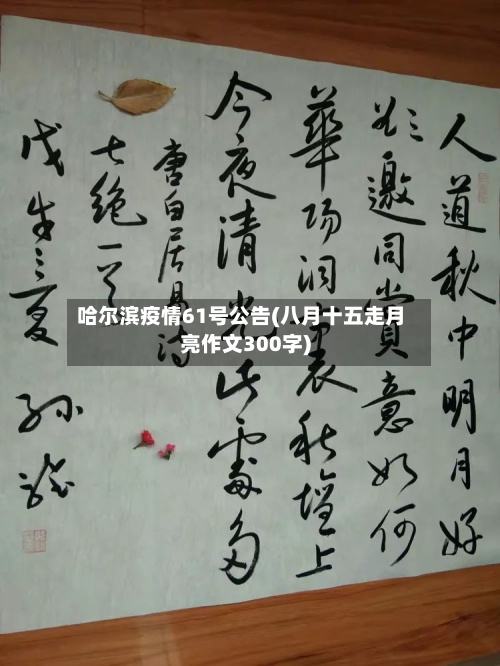 人道秋中明月好
欲邀同賞意如何
華陽洞裏秋壇上
今夜清光此處多
唐白居易詩
七絕一首
戊戌之夏
哈尔滨疫情61号公告(八月十五走月
亮作文300字)